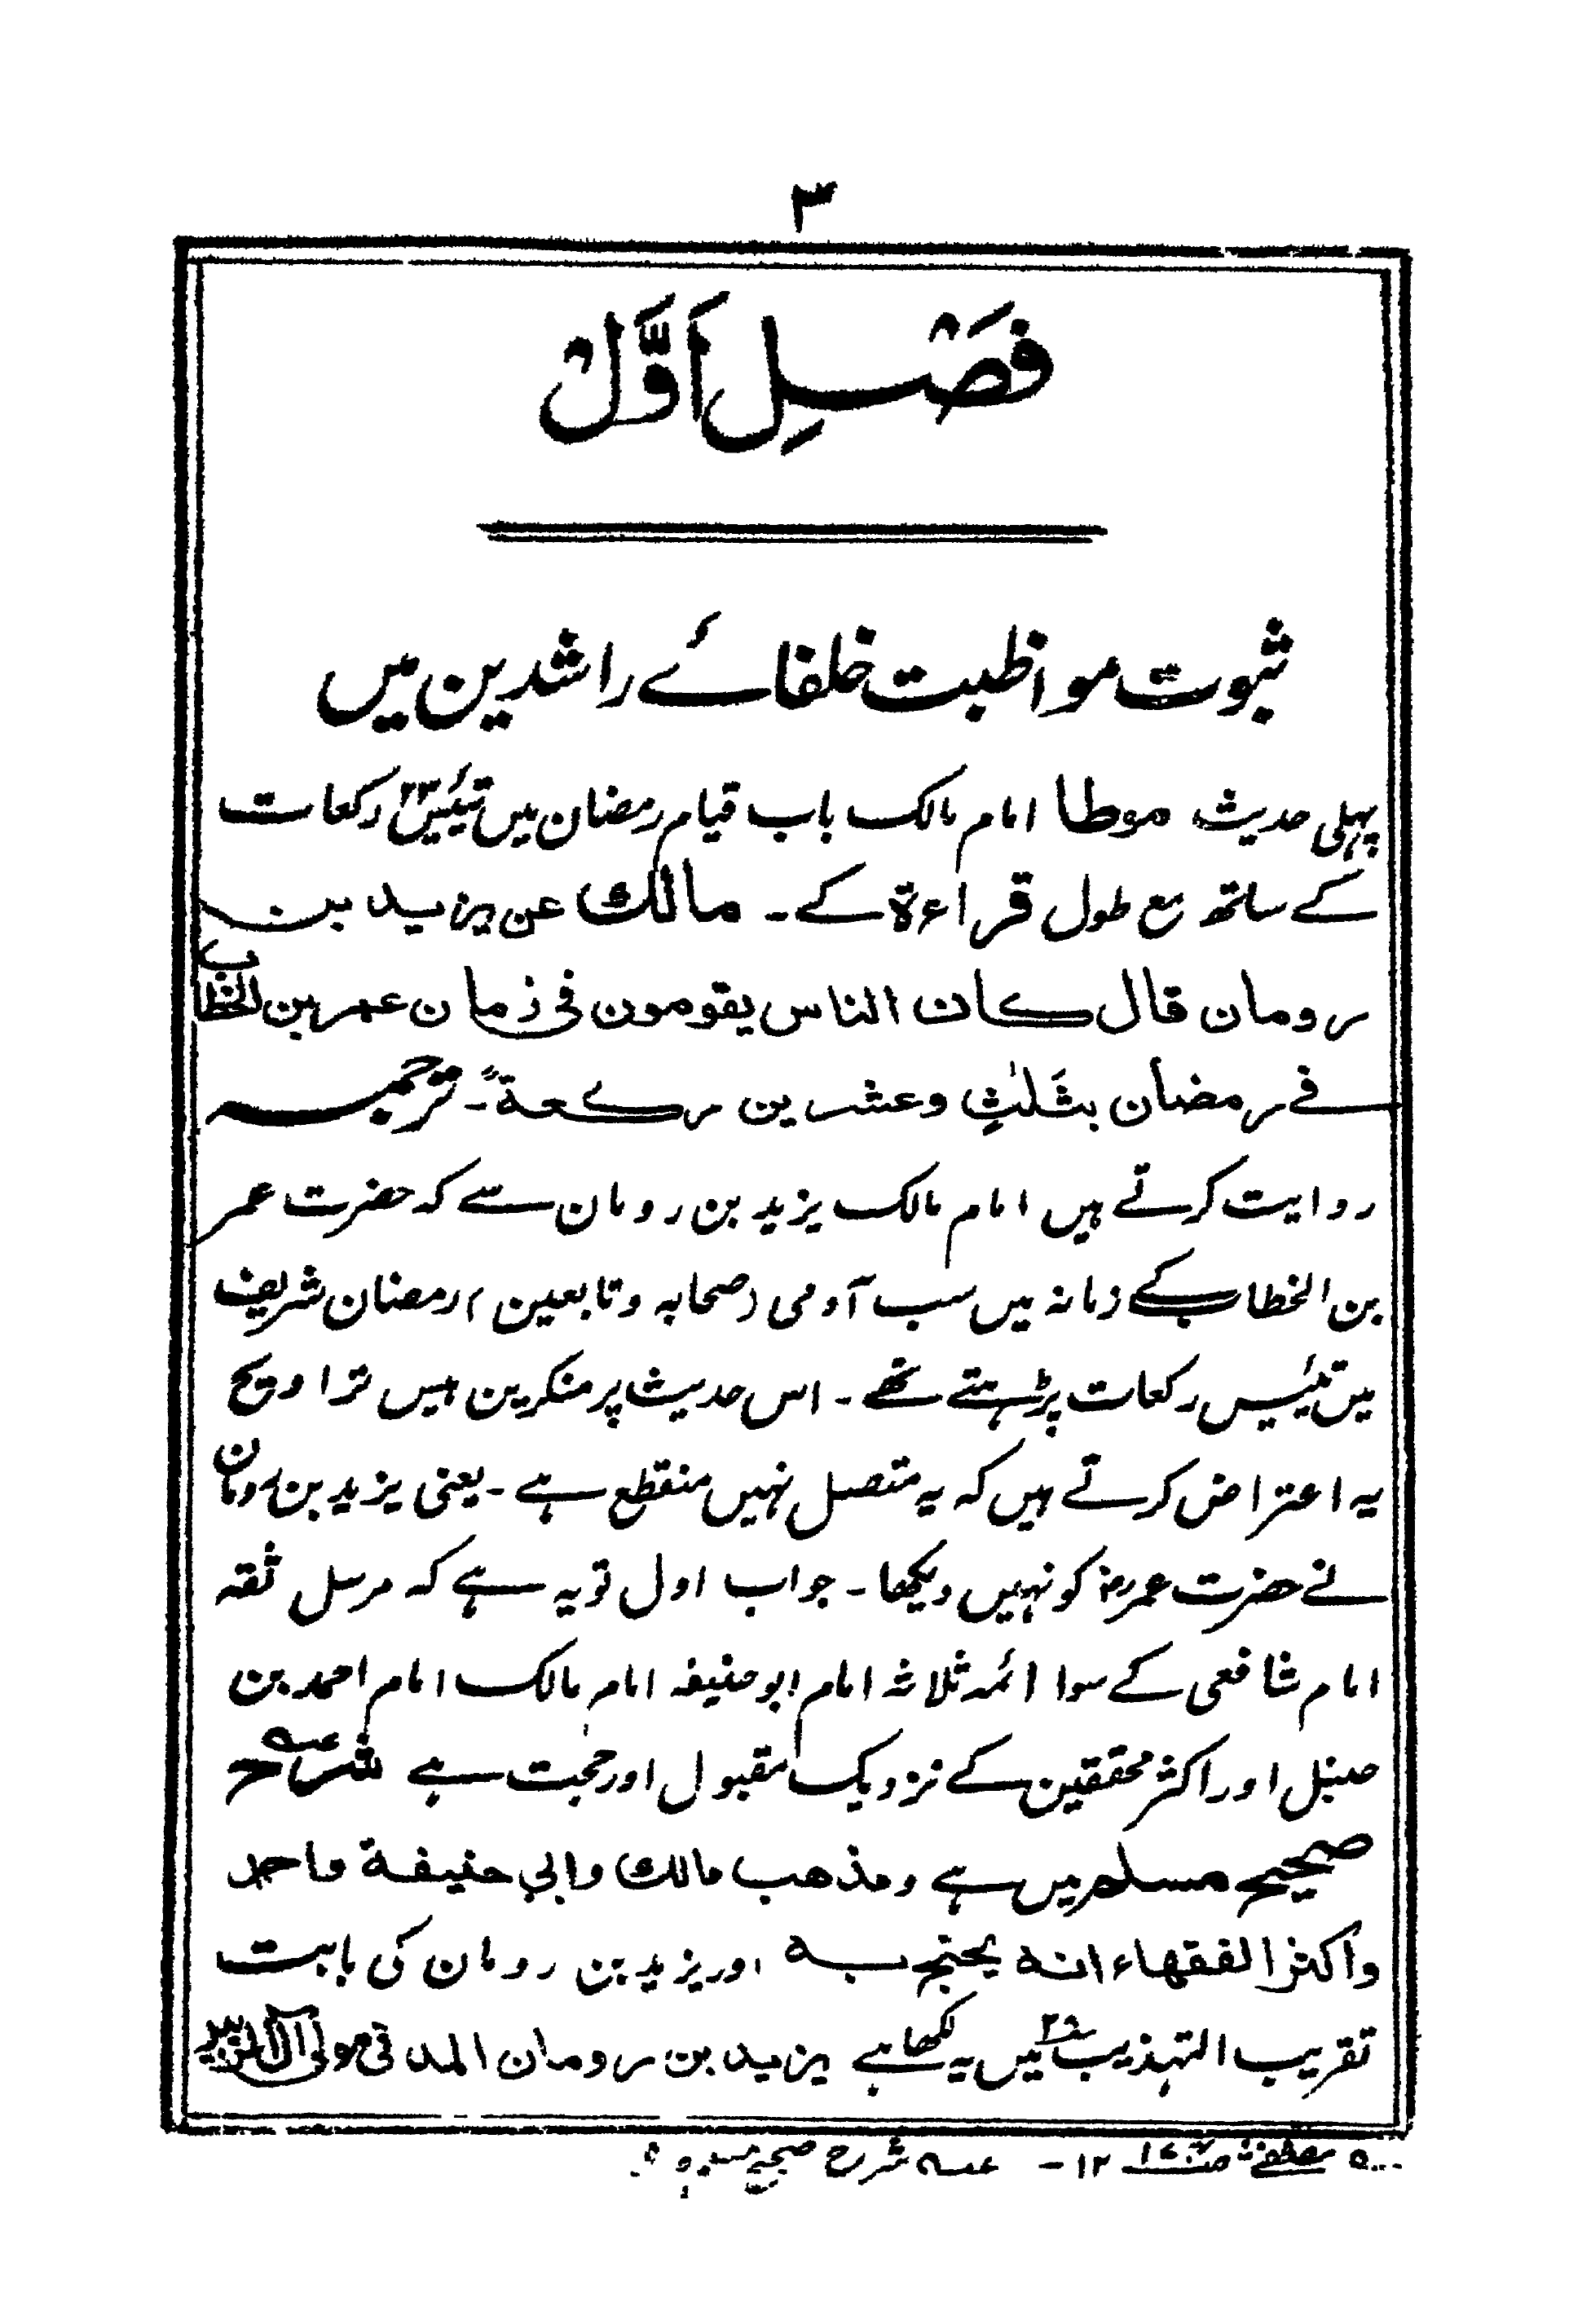 ۳
فَصْلِ اَوَّلْ
ثبوت مواظبت خلفائے راشدین میں
پہلی حدیث موطا امام مالک باب قیام رمضان میں تیئیس۲۳ رکعات
کے ساتھ مع طول قراءۃ کے ۔ مالك عن يزيد بن
رومان قال كان الناس يقومون في زمان عمر بن الخطاب
في رمضان بثَلٰثٍ وعشرين ركعةً ۔ ترجمہ
روایت کرتے ہیں امام مالک یزید بن رومان سے کہ حضرت عمر
بن الخطاب کے زمانہ میں سب آدمی (صحابہ و تابعین) رمضان شریف
میں تیئیس رکعات پڑہتے تھے ۔ اس حدیث پر منکرین بیس تراویح
یہ اعتراض کرتے ہیں کہ یہ متصل نہیں منقطع ہے ۔ یعنی یزید بن رومان
نے حضرت عمررض کو نہیں دیکھا ۔ جواب اول تو یہ ہے کہ مرسل ثقہ
امام شافعی کے سوا ائمہ ثلاثہ امام ابو حنیفہ امام مالک امام احمد بن
حنبل اور اکثر محققین کے نزدیک مقبول اور حجت ہے شرح عہ
صحیح مسلم میں ہے ومذهب مالك وابي حنيفة واحمد
واكثر الفقهاء انه يحتج به اور یزید بن رومان کی بابت
تقریب التہذیب میں یہ لکھا ہے يزيد بن رومان المدني مولى آل الزبير
۱۲ ۔ عہ شرح صحیح مسلم